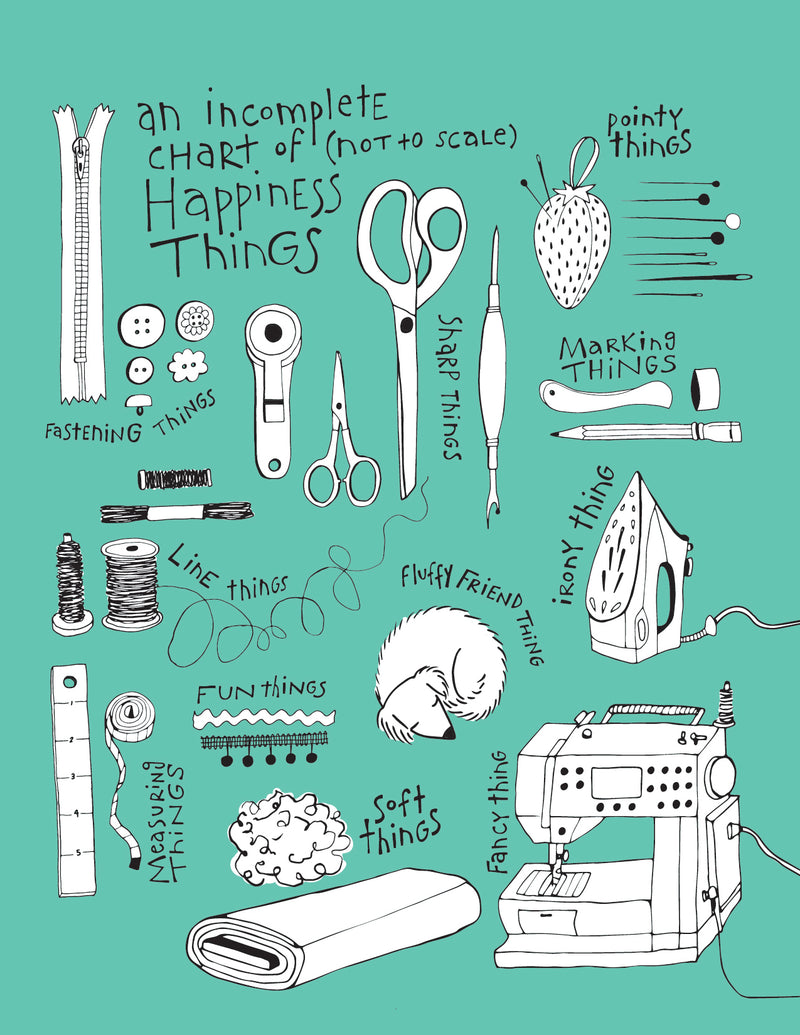 an incomplete
CHART of (not to scale)
Happiness
Things
pointy
things
Sharp Things
Marking
Things
Fastening Things
Line things
irony thing
Fluffy Friend Thing
Fun things
1
2
3
4
5
Measuring
Things
Soft
things
Fancy thing